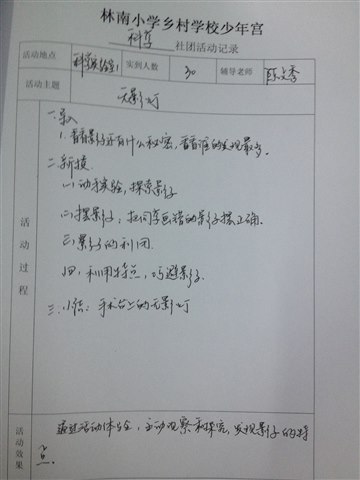 林南小学乡村学校少年宫
科学 社团活动记录
活动地点 科学实验室1 实到人数 30 辅导老师
活动主题 无影灯
活动过程
一、导入
1.看看影子还有什么秘密,看看谁的发现最多。
二、新授
(一)动手实验,探索影子
(二)摆影子:把同学画错的影子摆正确。
(三)影子的利用
四、利用特点,巧避影子。
三、小结:手术台上的无影灯
活动效果
通过活动体验,主动观察和探究,发现影子的特
点。